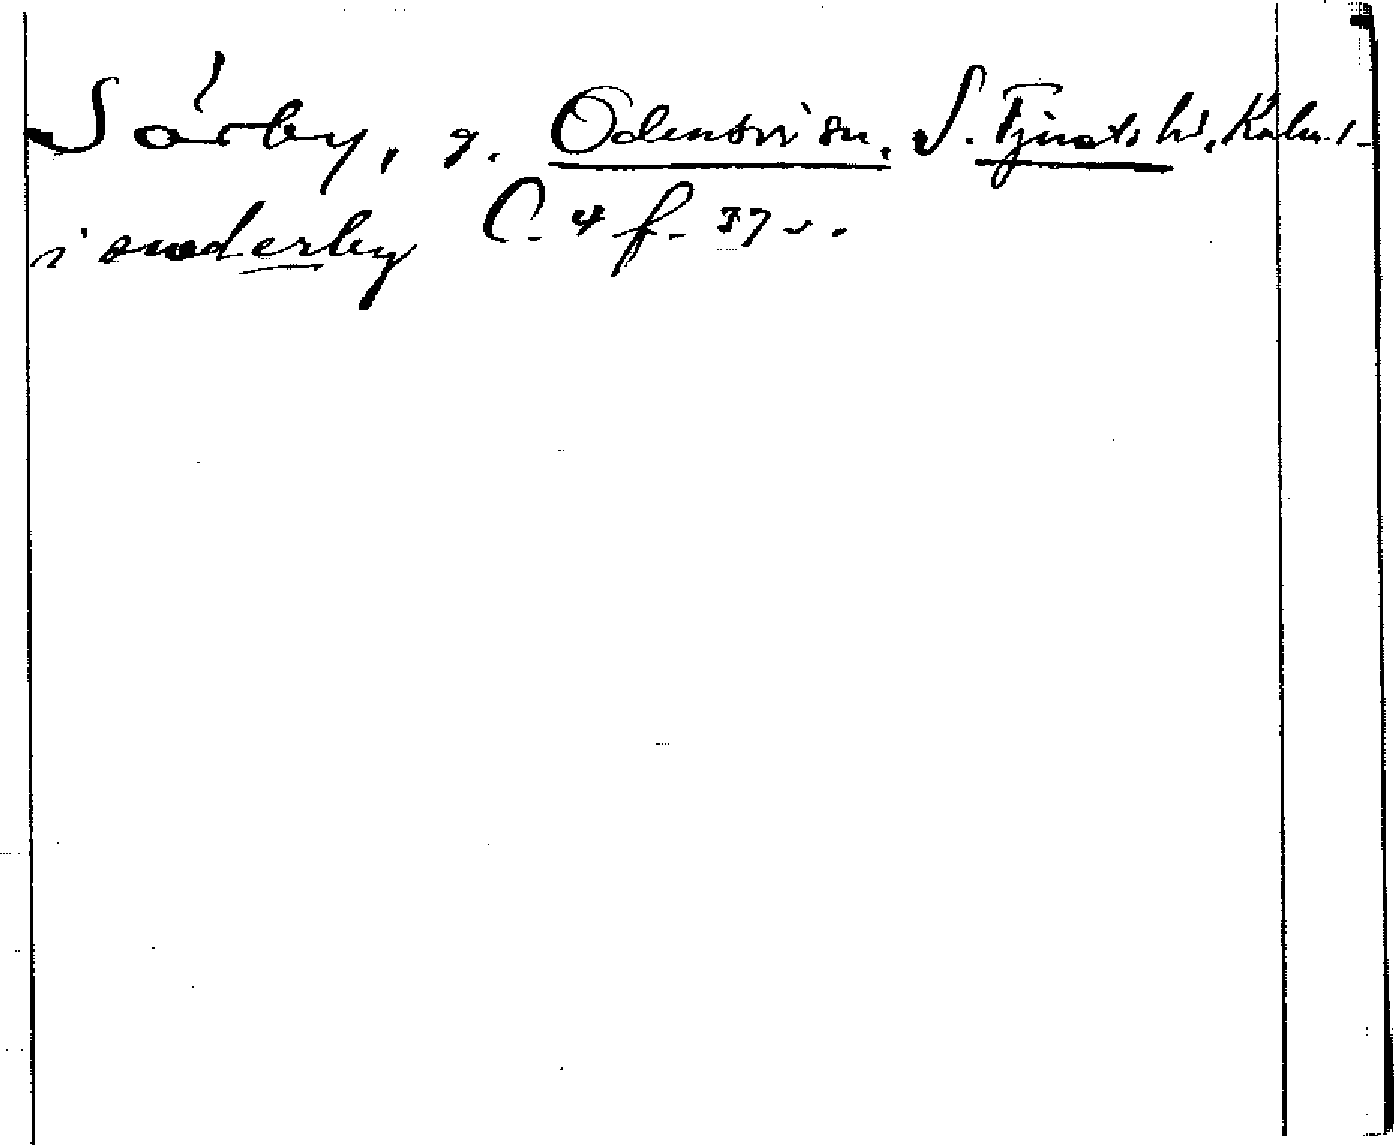 Sörby, g. Odensvi sn. S. Tjusts hd. Kalm. l.
i suderby C. 4 f. 37 v.